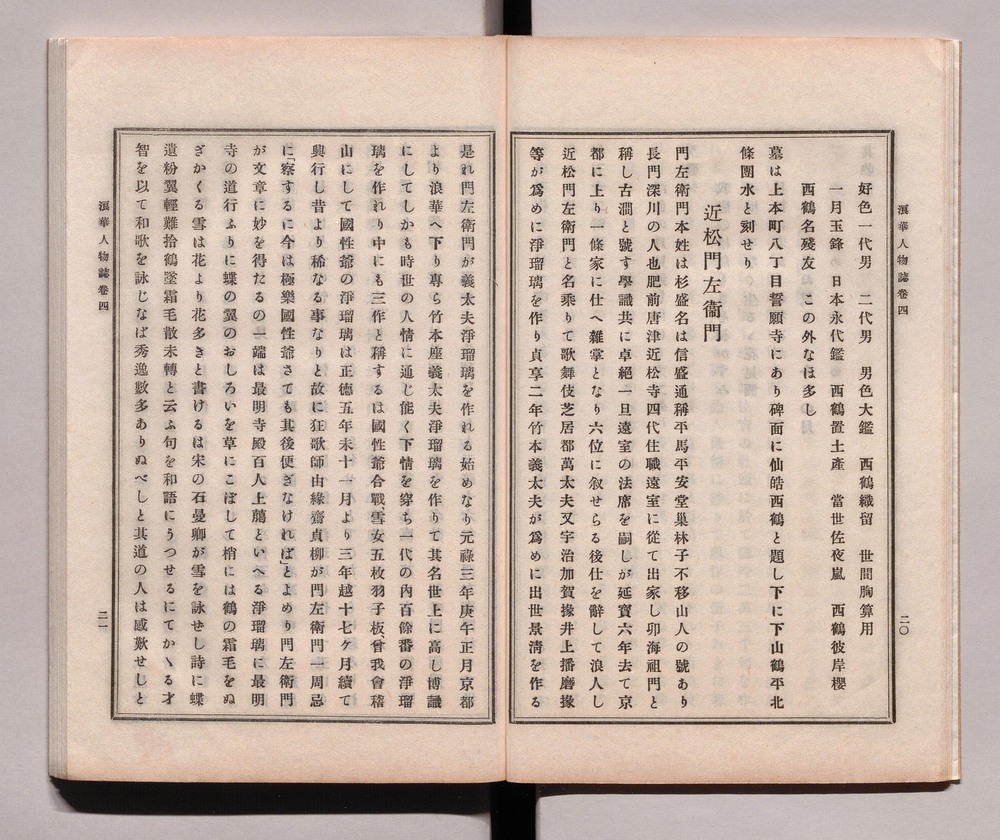 浪華人物誌卷四
二〇
好色一代男　二代男　男色大鑑　西鶴織留　世間胸算用
一月玉鋒　日本永代鑑　西鶴置土產　當世佐夜嵐　西鶴彼岸櫻
西鶴名殘友　この外なほ多し
墓は上本町八丁目誓願寺にあり碑面に仙皓西鶴と題し下に下山鶴平北
條團水と刻せり
近松門左衞門
門左衞門本姓は杉盛名は信盛通稱平馬平安堂巢林子不移山人の號あり
長門深川の人也肥前唐津近松寺四代住職遠室に從て出家し卯海祖門と
稱し古澗と號す學識共に卓絕一旦遠室の法席を嗣しが延寶六年去て京
都に上り一條家に仕へ雜掌となり六位に敘せらる後仕を辭して浪人し
近松門左衞門と名乘りて歌舞伎芝居都萬太夫又宇治加賀掾井上播磨掾
等が爲めに淨瑠璃を作り貞享二年竹本義太夫が爲めに出世景淸を作る
是れ門左衞門が義太夫淨瑠璃を作れる始めなり元祿三年庚午正月京都
より浪華へ下り專ら竹本座義太夫淨瑠璃を作りて其名世上に高し博識
にしてしかも時世の人情に通じ能く下情を穿ち一代の內百餘番の淨瑠
璃を作れり中にも三作と稱するは國性爺合戰、雪女五枚羽子板、曾我會稽
山にして國性爺の淨瑠璃は正德五年未十一月より三年越十七ケ月續て
興行し昔より稀なる事なりと故に狂歌師由緣齋貞柳が門左衞門一周忌
に「察するに今は極樂國性爺さても其後便ぎなければ」とよめり門左衞門
が文章に妙を得たるの一端は最明寺殿百人上﨟といへる淨瑠璃に最明
寺の道行ふりに蝶の翼のおしろいを草にこぼして梢には鶴の霜毛をぬ
ぎかくる雪は花より花多きと書けるは宋の石曼卿が雪を詠せし詩に蝶
遺粉翼輕難拾鶴墜霜毛散未轉と云ふ句を和語にうつせるにてかゝる才
智を以て和歌を詠じなば秀逸數多ありぬべしと其道の人は感歎せしと
浪華人物誌卷四
二一